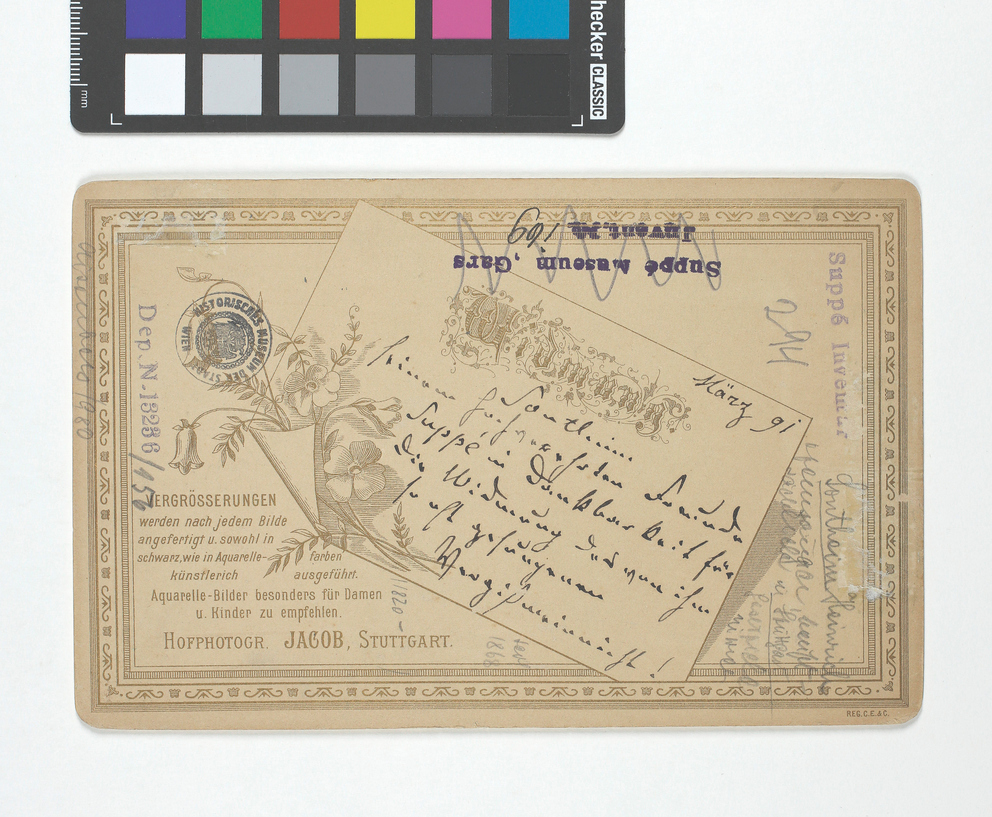 checker CLASSIC
mm
Suppé Museum, Gars
Invent. No 169
Suppé Inventar
214
HISTORISCHES MUSEUM DER STADT WIEN
Dep. N. 13286/150
Widmung
März 91
Seinem hochverehrten Freunde
Suppé in Dankbarkeit für
die Widmung des von ihm
so oft gesungenen
Vergißmeinnicht!
Sontheim
VERGRÖSSERUNGEN
werden nach jedem Bilde
angefertigt u. sowohl in
schwarz, wie in Aquarelle- farben
künstlerich ausgeführt.
Aquarelle-Bilder besonders für Damen
u. Kinder zu empfehlen.
HOFPHOTOGR. JACOB, STUTTGART.
Sontheim Heinrich
1820
1868
REG. C.E. & C.